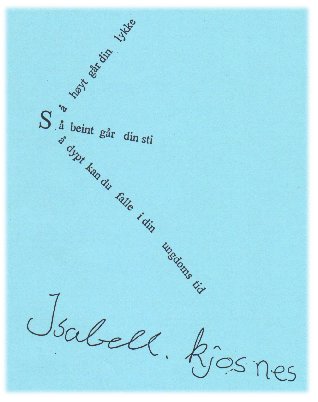 Så høyt går din lykke
å beint går din sti
å dypt kan du falle i din ungdoms tid
Isabell. kjosnes